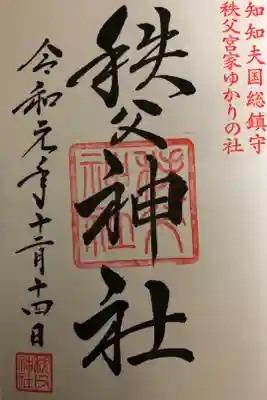 知知夫国総鎮守
秩父宮家ゆかりの社
秩父神社
令和元年十二月十四日
秩父
神社